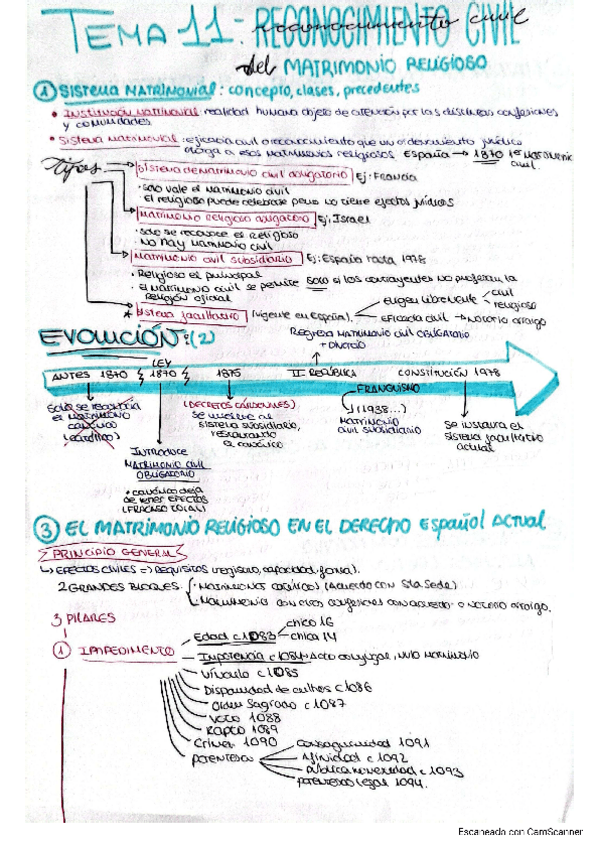 TEMA 11: RECONOCIMIENTO CIVIL
del MATRIMONIO RELIGIOSO
① SISTEMA MATRIMONIAL: concepto, clases, precedentes
• Institución matrimonial: realidad humana objeto de atención por las distintas confesiones
y comunidades.
• Sistema matrimonial: eficacia civil o reconocimiento que un ordenamiento jurídico
otorga a esos matrimonios religiosos. España → 1870 1er matrimonio
civil.
Tipos
Sistema de matrimonio civil obligatorio Ej: Francia
· Solo vale el matrimonio civil
· El religioso puede celebrarse pero no tiene efectos jurídicos
Matrimonio religioso obligatorio Ej: Israel
· Solo se reconoce el religioso
· No hay matrimonio civil
Matrimonio civil subsidiario Ej: España hasta 1978
· Religioso el principal
· El matrimonio civil se permite solo si los contrayentes no profesan la
religión oficial
* Sistema facultativo (vigente en España).
eligen libremente
civil
religioso
eficacia civil → notorio arraigo
EVOLUCIÓN: (2)
Regresa matrimonio civil obligatorio
+ divorcio
LEY
ANTES 1870
1870
1875
II REPÚBLICA
CONSTITUCIÓN 1978
FRANQUISMO
Solo se reconocía
el matrimonio
canónico
(católico)
INTRODUCE
MATRIMONIO CIVIL
OBLIGATORIO
• canónico deja
de tener EFECTOS
(FRACASO TOTAL)
(DECRETOS CÁRDENAS)
se vuelve al
sistema subsidiario,
restaurando
el canónico
(1938...)
MATRIMONIO
civil subsidiario
Se instaura el
sistema facultativo
actual
③ EL MATRIMONIO RELIGIOSO EN EL DERECHO Español ACTUAL
PRINCIPIO GENERAL
↳ EFECTOS CIVILES => REQUISITOS (registro, capacidad, forma).
2 GRANDES BLOQUES
· Matrimonios católicos (Acuerdo con Sta Sede)
· Matrimonio con otras confesiones con acuerdo o notorio arraigo.
3 PILARES
① IMPEDIMENTO
Edad c 1083
chico 16
chica 14
Impotencia c 1084 → Acto conyugal, nulo matrimonio
Vínculo c 1085
Disparidad de cultos c 1086
Orden Sagrado c 1087
Voto 1088
Rapto 1089
Crimen 1090
PARENTESCO
Consaguinidad 1091
Afinidad c 1092
pública honestidad c 1093
parentesco legal 1094.
Escaneado con CamScanner